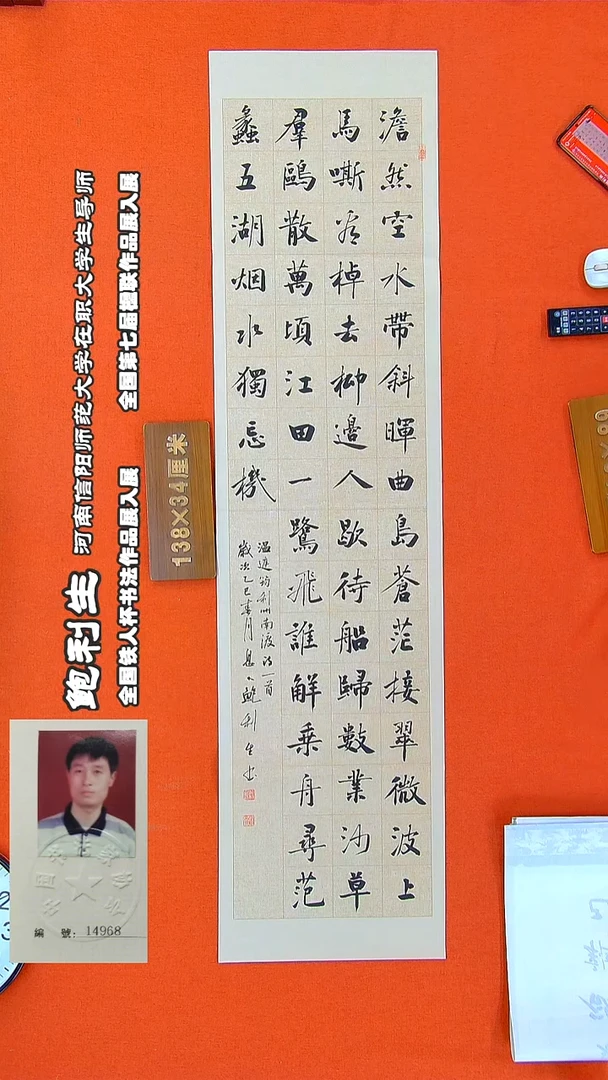 澹然空水帶斜暉曲島蒼茫接翠微波上
馬嘶看棹去柳邊人歇待船歸數叢沙草
羣鷗散萬頃江田一鷺飛誰解乘舟尋范
蠡五湖烟水獨忘機
温庭筠利州南渡诗一首
歲次乙巳春月 鮑利生书
鲍利生 河南信阳师范大学在职大学生导师
全国铁人杯书法作品展入展 全国第七届楹联作品展入展
138×34厘米
編 號：14968